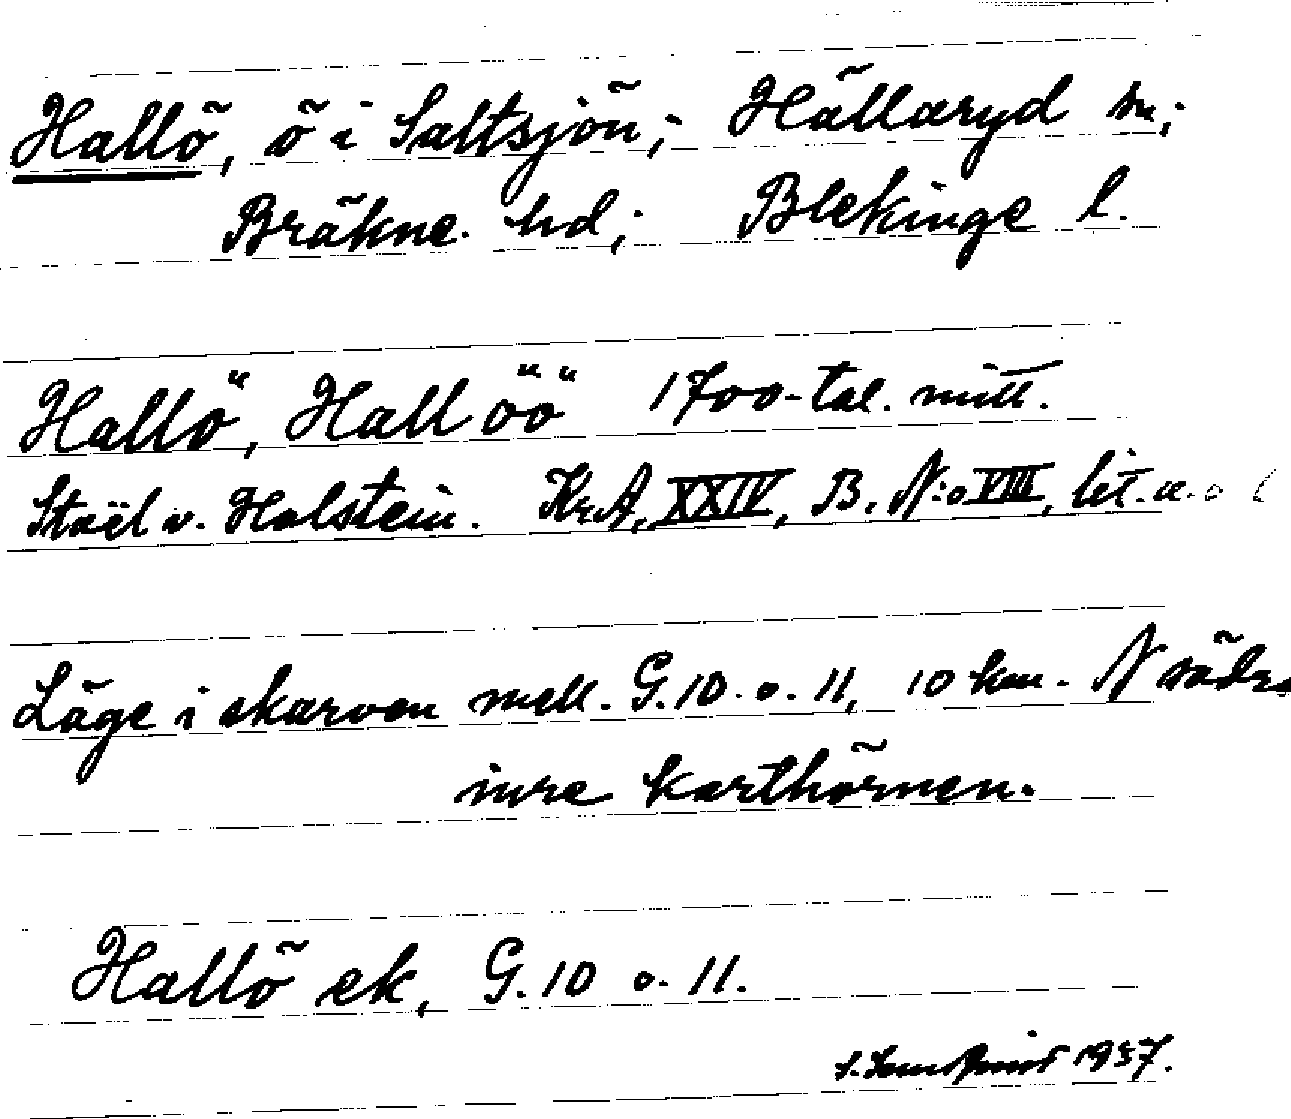 Hallö, ö i Saltsjön; Hällaryd sn;
Bräkne. hd; Blekinge l.
Hallö, Hall öö 1700-tal. mitt.
Staël v. Holstein. KrA, XXIV, B. N:o VIII, lit. a. o
Läge i skarven mell. G. 10. o. 11, 10 km. N södra
inre karthörnen.
Hallö ek, G. 10 o. 11.
1937.